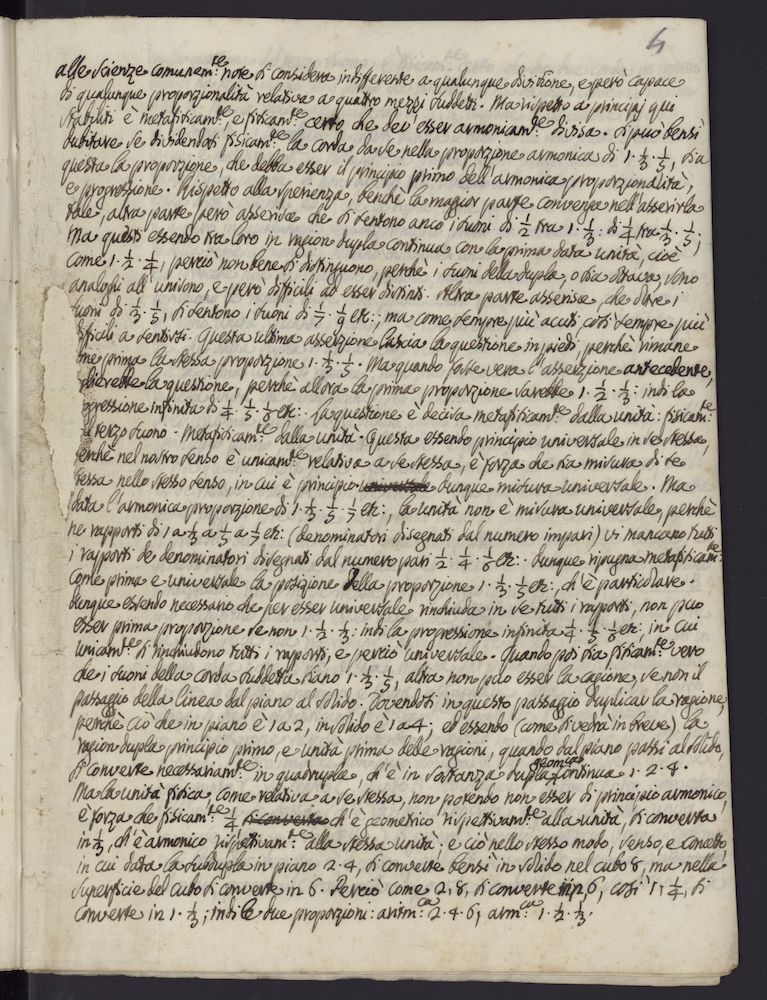 4
alle scienze comunem.te note si considera indifferente a qualunque divisione, e però capace
di qualunque proporzionalità relativa a quattro mezzi suddetti. Ma rispetto a principj qui
stabiliti è metafisicam.te e fisicam.te certo, che dev'esser armonicam.te divisa. Si può bensì
dubitare se dividendosi fisicam.te la corda da se nella proporzione armonica di 1. 1/3. 1/5, sia
questa la proporzione, che debba esser il principio primo dell'armonica proporzionalità,
e progressione. Rispetto alla sperienza, benchè la maggior parte convenga nell'asserirla
tale, altra parte però asserisce che si sentono anco i suoni di 1/2 tra 1. 1/3: di 1/4 tra 1/3. 1/5;
ma questi essendo tra loro in ragion dupla continua con la prima data unità, cioè
come 1. 1/2. 1/4, perciò non bene si distinguono, perchè i suoni della dupla, o sia ottava, sono
analoghi all'unisono, e però difficili ad esser distinti. Altra parte asserisce, che oltre i
suoni di 1/3. 1/5, si sentono i suoni di 1/7. 1/9 etc:, ma come sempre più acuti così sempre più
difficili a sentirsi. Questa ultima asserzione lascia la questione in piedi perchè rimane
me prima la stessa proporzione 1. 1/3. 1/5. Ma quando fosse vera l'asserzione antecedente,
la questione, perchè allora la prima proporzione sarebbe 1. 1/2. 1/3: indi la
gressione infinita di 1/4. 1/5. 1/6 etc:. La questione è decisa metafisicam.te dalla unità: fisicam.te
terzo suono. Metafisicam.te dalla unità. Questa essendo principio universale in se stessa,
perchè nel nostro senso è unicam.te relativa a se stessa, è forza che sia misura di se
stessa nello stesso senso, in cui è principio universale dunque misura universale. Ma
data l'armonica proporzione di 1. 1/3. 1/5. 1/7 etc:, la unità non è misura universale, perchè
ne rapporti di 1 a 1/3 a 1/5 a 1/7 etc: (denominatori disegnati dal numero impari) vi mancano tutti
i rapporti de denominatori disegnati dal numero pari 1/2. 1/4. 1/6 etc:. Dunque ripugna metafisicam.te
come prima e universale la posizione della proporzione 1. 1/3. 1/5 etc:, ch'è particolare.
Dunque essendo necessario che per esser universale rinchiuda in se tutti i rapporti, non può
esser prima proporzione se non 1. 1/2. 1/3: indi la progressione infinita 1/4. 1/5. 1/6 etc: in cui
unicam.te si rinchiudono tutti i rapporti, e perciò universale. Quando poi sia fisicam.te vero
che i suoni della corda suddetta siano 1. 1/3. 1/5, altra non può esser la cagione, se non il
passaggio della linea dal piano al solido. Dovendosi in questo passaggio duplicar la ragione,
perchè ciò che in piano è 1 a 2, in solido è 1 a 4; ed essendo (come si vedrà in breve) la
ragion dupla principio primo, e unità prima delle ragioni, quando dal piano passi al solido,
si converte necessariam.te in quadrupla, ch'è in sostanza dupla geom.ca continua 1. 2. 4.
Ma la unità fisica, come relativa a se stessa, non potendo non esser di principio armonico,
è forza che fisicam.te 1/4 si converta ch'è geometrico rispettivam.te alla unità, si converta
in 1/3, ch'è armonico rispettivam.te alla stessa unità; e ciò nello stesso modo, senso, e concetto
in cui data la suddupla in piano 2. 4, si converte bensì in solido nel cubo 8, ma nella
superficie del cubo si converte in 6. Perciò come 2, 8, si converte in 2, 6, così 1, 1/4, si
converte in 1. 1/3; indi le due proporzioni: aritm.ca 2. 4. 6, arm.ca 1. 1/2. 1/3.